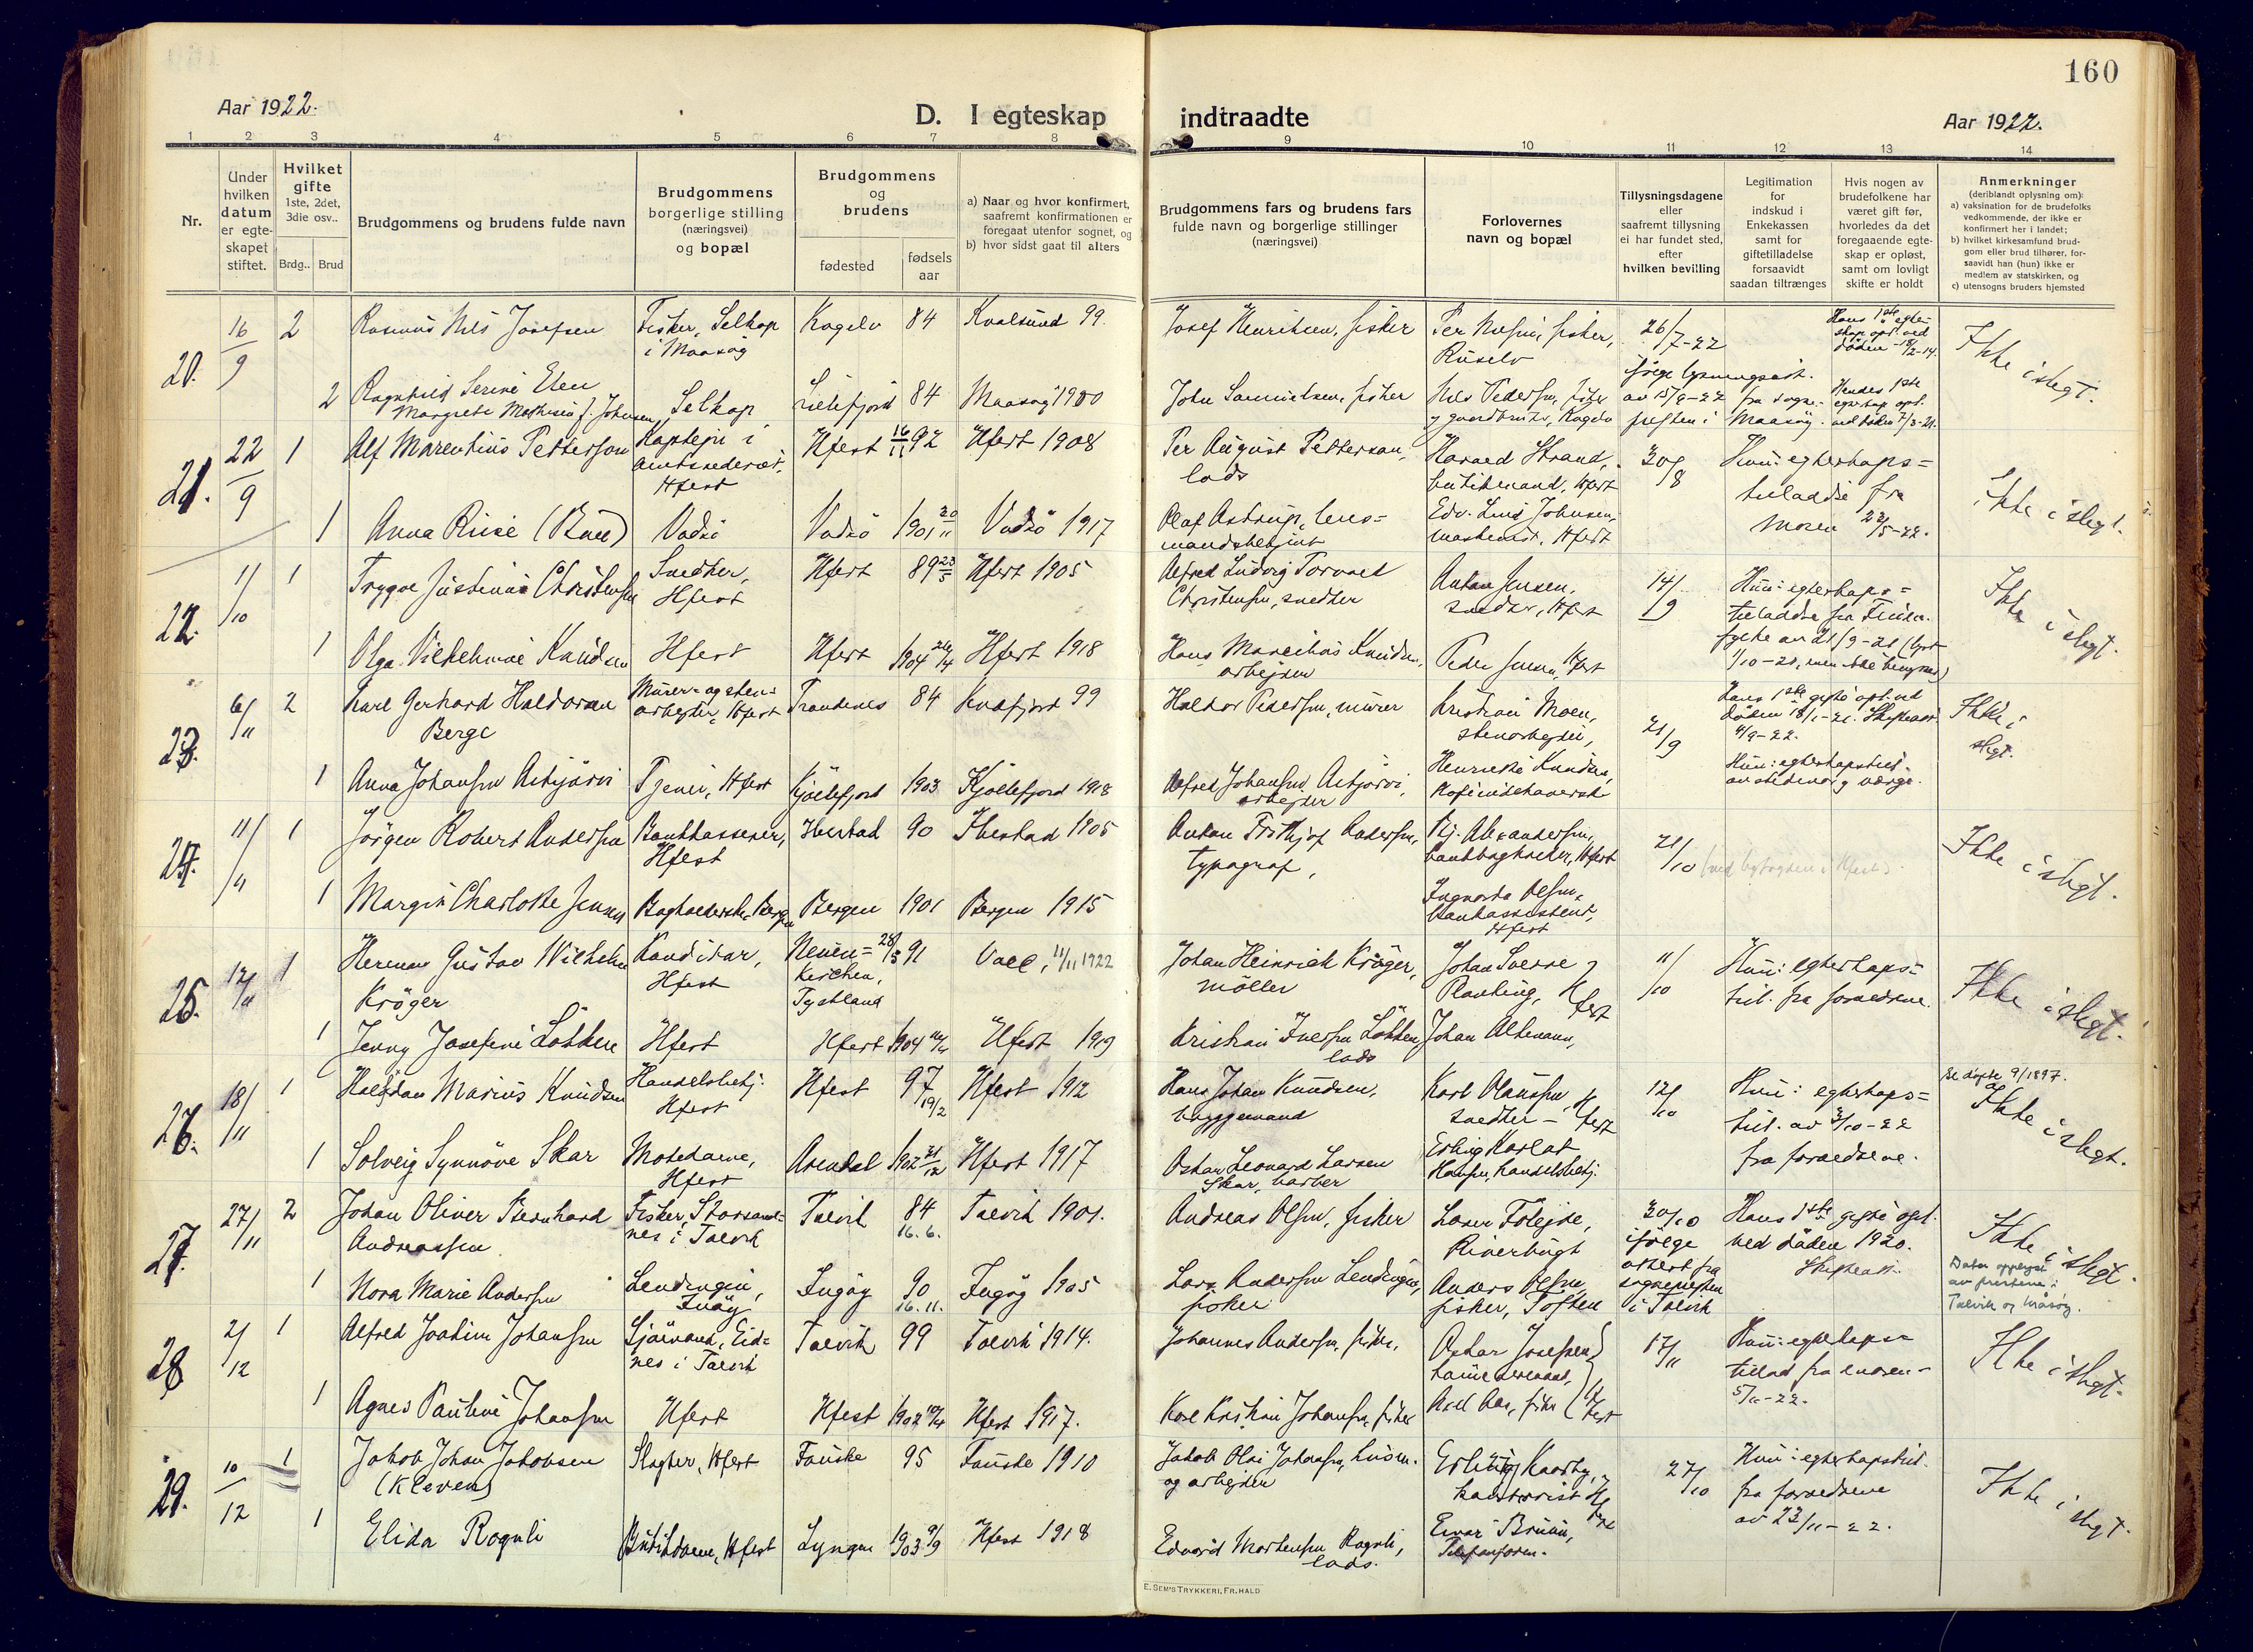 160
Aar 1922.
D. I egteskap indtraadte
Aar 1922.
1 2 3 4 5 6 7 8 9 10 11 12 13 14
Nr.
Under hvilken datum er egte-skapet stiftet.
Hvilket gifte
1ste, 2det, 3die osv..
Brdg.. Brud
Brudgommens og brudens fulde navn
Brudgommens borgerlige stilling (næringsvei) og bopæl
Brudgommens og brudens
fødested
fødsels aar
a) Naar og hvor konfirmert, saafremt konfirmationen er foregaat utenfor sognet, og
b) hvor sidst gaat til alters
Brudgommens fars og brudens fars fulde navn og borgerlige stillinger (næringsvei)
Forlovernes navn og bopæl
Tillysningsdagene eller saafremt tillysning ei har fundet sted, efter hvilken bevilling
Legitimation for indskud i Enkekassen samt for giftetilladelse forsaavidt saadan tiltrænges
Hvis nogen av brudefolkene har været gift før, hvorledes da det foregaaende egte-skap er opløst, samt om lovligt skifte er holdt
Anmerkninger
(deriblandt oplysning om):
a) vaksination for de brudefolks vedkommende, der ikke er konfirmert her i landet;
b) hvilket kirkesamfund brud-gom eller brud tilhører, for-saavidt han (hun) ikke er medlem av statskirken, og
c) utensogns bruders hjemsted
20. 16/9 2 Rasmus Nils Josefsen Fisker, Selkop i Maasøy Kogelv 84 Kvalsund 99. Josef Henriksen, fisker fisker, 26/7-22 Hans 1ste egte-skap opl. ved døden 18/2-14. Ikke i slegt.
2 Ragnhild Serine Elen Margrete Mathisen f. Johnsen Selkop Lillefjord 84 Maasøy 1900 John Samuelsen, fisker Nils Pedersen, fisker og gaardbruker, Kogelv ifølge lysningsatt. av 15/9-22 fra sogne-presten i Maasøy. Hendes 1ste egteskap opl. ved døden 7/3-21.
21. 22/9 1 Alf Marentius Petterson Kaptejn i Hfest Hfest 16/11 92 Hfest 1908 Per August Petterson, lods Harald Strand, butikmand, Hfest 30/8 Hun: egteskaps=tilladelse fra moren 22/5-22. Ikke i slegt.
1 Anna Ruse Vadsø Vadsø 1901 20/11 Vadsø 1917 Olaf Astrup, lens=mandsbetjent Johnsen, maskinist, Hfest
22. 1/10 1 Trygve Justinus Christensen Snedker, Hfest Hfest 89 23/5 Hfest 1905 Alfred Ludvig Torvald Christensen, snedker Anton Jensen, snedker, Hfest 14/9 Hun: egteskaps=tilladelse fra Finm. fylke av 21/9-21 Ikke i slegt.
1 Olga Vilhelmine Knudsen Hfest Hfest 1904 26/4 Hfest 1918 Hans Marcelius Knudsen, arbejder Peder Jensen, Hfest
23. 6/11 2 Karl Gerhard Haldorsen Berge Murer- og sten=arbejder, Hfest Trondenes 84 Kvæfjord 99 Haldor Pedersen, murer Kristian Moen, stenarbejder, 21/9 Hans 1ste gifte opl. ved døden Skifteatt. 4/9-22. Ikke i slegt.
1 Anna Johansen Askjærvi Tjener, Hfest Kjøllefjord 1903 Kjøllefjord 1918 Alfred Johansen Askjærvi, arbejder Henrikke Knudsen, Hun: egteskapstil.
24. 11/11 1 Jørgen Robert Andersen Bankkasserer, Hfest Ibestad 90 Ibestad 1905 Anton Fritjof Andersen, typograf, Alexandersen, bankbogholder, Hfest 21/10 (ved byfogden i Hfest). Ikke i slegt.
1 Margit Charlotte Jensen Bogholderske, Bergen Bergen 1901 Bergen 1915 Ingvarda Olsen, bankassistent, Hfest
25. 12/11 1 Herman Gustav Wilhelm Krøger Konditor, Hfest Neuen=kirchen, Tyskland 28/3 91 11/11 1922 Johan Heinrich Krøger, møller Johan Sverre Plantin, Hfest 11/10 Hun: egteskaps=til. fra forældrene. Ikke i slegt.
1 Jenny Josefine Løkken Hfest Hfest 1904 Hfest 1919 Kristian Iversen Løkken, lods Johan Altmann,
26. 18/11 1 Halfdan Marius Knudsen Handelsbetj. Hfest Hfest 97 19/2 Hfest 1912 Hans Johan Knudsen, bryggemand Karl Olaussen, snedker - Hfest 12/10 Hun: egteskaps=til. av 3/10-22 fra forældrene. Se døpte 9/1897. Ikke i slegt.
1 Solveig Synnøve Skar Motedame, Hfest Arendal 1902 21/12 Hfest 1917 Oskar Leonard Larsen Skar, barber Erling Harlot Hansen, handelsbetj.
27. 27/11 2 Johan Oliver Bernhard Andreassen Fisker, Storsand=nes i Talvik Talvik 84 16.6. Talvik 1901. Andreas Olsen, fisker Riverbugt 30/10 ifølge attest fra sognepresten i Talvik Hans 1ste gifte opl. ved døden 1920. Skifteatt. Ikke i slegt.
1 Nora Marie Andersen Lendingen, Ingøy Ingøy 90 16.11. Ingøy 1905 Lars Andersen Lendingen, fisker Anders Olsen, fisker, Toften Dater opplyst av prestene i Talvik og Måsøy.
28 2/12 1 Alfred Joakim Johansen Sjømand, Eid=nes i Talvik Talvik 99 Talvik 1914. Johannes Andersen, fisker, Oskar Josefsen 17/11 Hun: egteskaps=tillad fra 5/11-22. Ikke i slegt.
1 Agnes Pauline Johansen Hfest Hfest 1902 Hfest 1917. Karl Kristian Johansen, fisker Hfest
29. 10/12 1 Jakob Johan Jakobsen (Kleven) Slagter, Hfest Fauske 95 Fauske 1910 Jakob Olai Johansen, husm. og arbejder Erling Kaarby, kontorist Hfest 27/10 Hun: egteskapstil. fra forældrene av 23/11-22. Ikke i slegt.
1 Elida Rognli Butikdame, Hfest Lyngen 1903 9/9 Hfest 1918 Edvard Mortensen Rognli, lods. Einar Bruun,
E. SEM'S TRYKKERI, FR.HALD